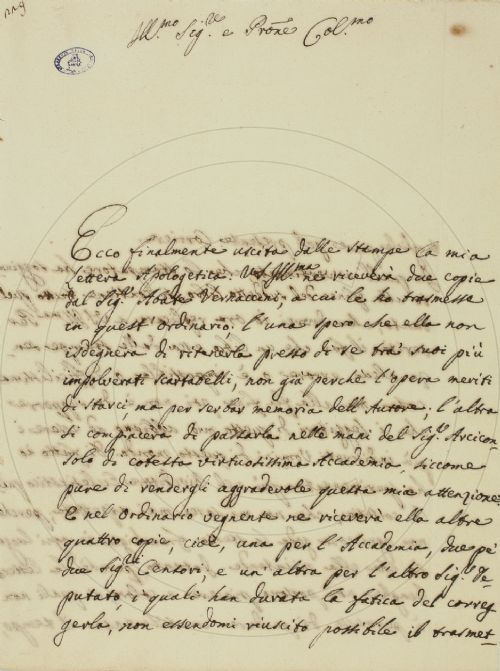 Ill.mo Sig.re e Prõne Col.mo
Ecco finalmente uscita dalle stampe la mia
Lettera Apologetica. Vs. Ill.ma ne riceverà due copie
dal Sig.r Abate Vernaccini, a cui le ho trasmesse
in quest'ordinario; l'una spero che ella non
isdegnerà di ritenerla presso di se trà suoi più
impolverati scartabelli, non già perche l'opera meriti
di starci ma per serbar memoria dell'Autore; l'altra
si compiacerà di passarla nelle mani del Sig.r Arcicon-
solo di cotesta virtuosissima Accademia, siccome
pure di rendergli aggradevole questa mia attenzione.
E nel ordinario vegnente ne riceverà ella altre
quattro copie, cioè, una per l'Accademia, due pe'
due Sig.ri Censori, e un'altra per l'altro Sig.r De-
putato, i quali han durata la fatica del correg-
gerla, non essendomi riuscito possibile il trasmet-